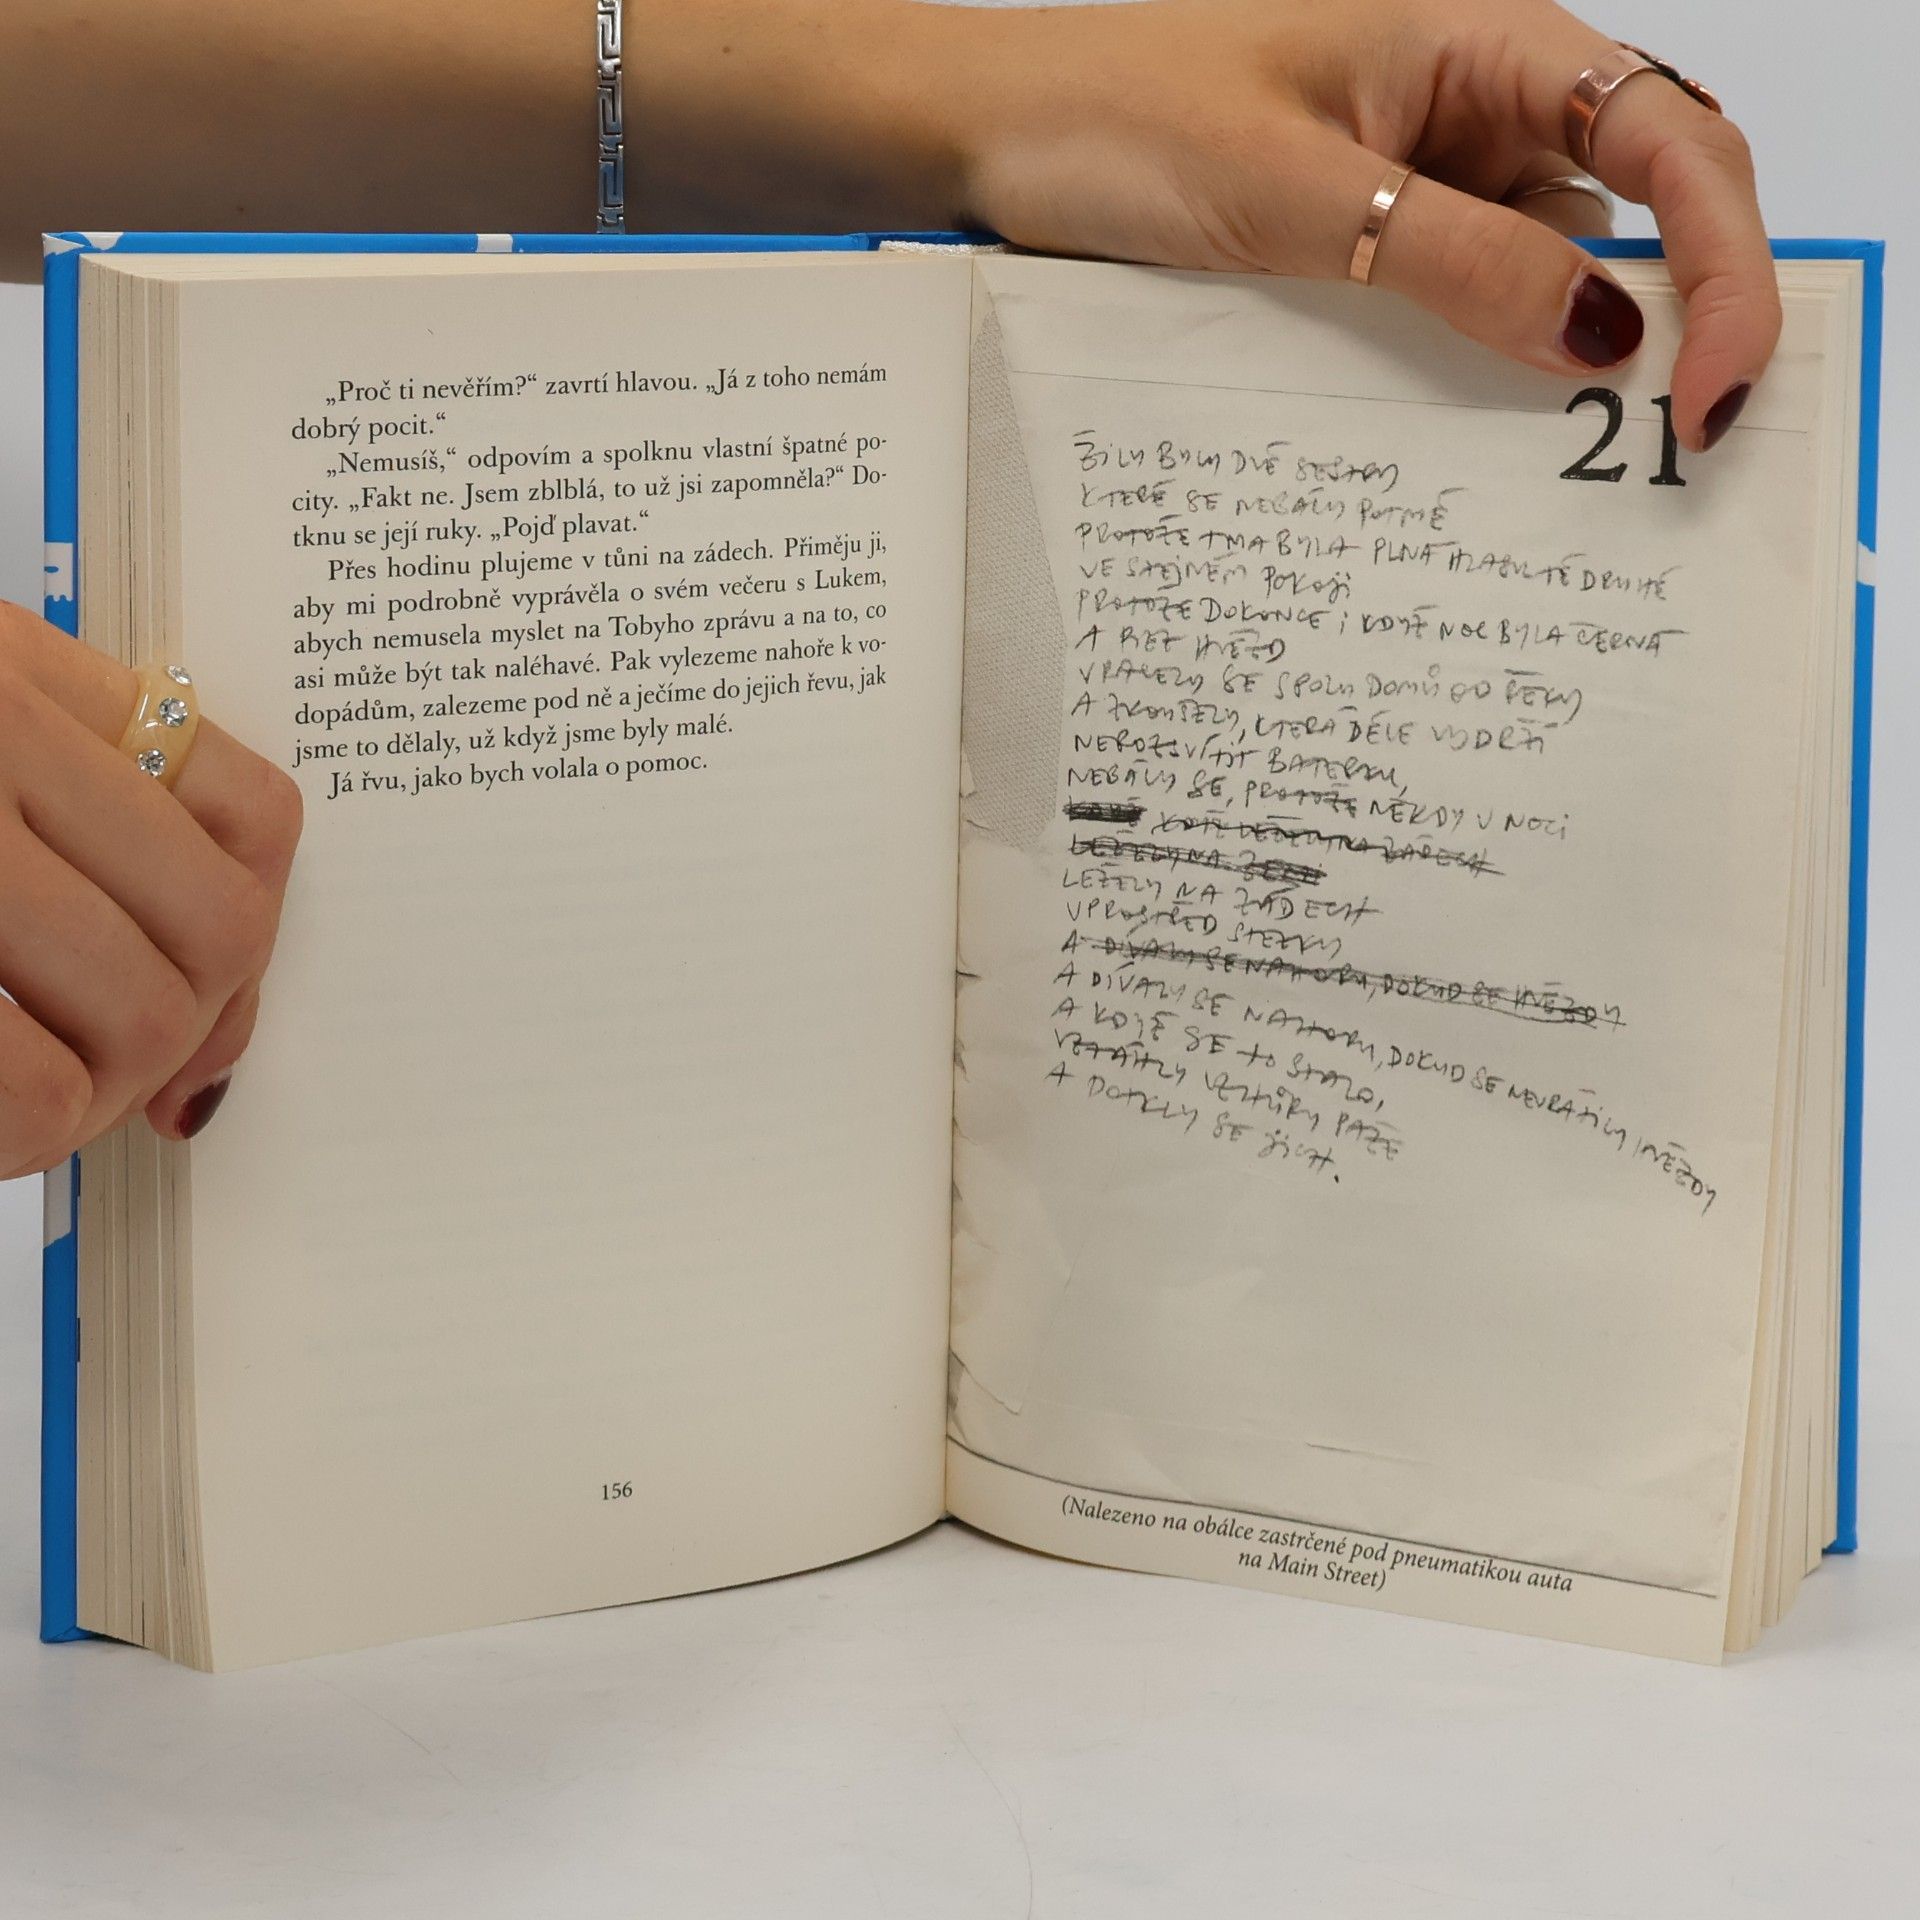 „Proč ti nevěřím?“ zavrtí hlavou. „Já z toho nemám
dobrý pocit.“
„Nemusíš,“ odpovím a spolknu vlastní špatné po-
city. „Fakt ne. Jsem zblblá, to už jsi zapomněla?“ Do-
tknu se její ruky. „Pojď plavat.“
Přes hodinu plujeme v tůni na zádech. Přiměju ji,
aby mi podrobně vyprávěla o svém večeru s Lukem,
abych nemusela myslet na Tobyho zprávu a na to, co
asi může být tak naléhavé. Pak vylezeme nahoře k vo-
dopádům, zalezeme pod ně a ječíme do jejich řevu, jak
jsme to dělaly, už když jsme byly malé.
Já řvu, jako bych volala o pomoc.
156
21
ŽILY BYLY DVĚ SESTRY
KTERÉ SE NEBÁLY POTMĚ
PROTOŽE TMA BYLA PLNÁ HLASU TÉ DRUHÉ
VE STEJNÉM POKOJI
PROTOŽE DOKONCE I KDYŽ NOC BYLA ČERNÁ
A BEZ HVĚZD
VRACELY SE SPOLU DOMŮ OD ŘEKY
A ZKOUŠELY, KTERÁ DÉLE VYDRŽÍ
NEROZSVÍTIT BATERKU,
NEBÁLY SE, PROTOŽE NĚKDY V NOCI
KDYŽ LEŽELY NA ZÁDECH
LEŽELY NA ZEMI
LEŽELY NA ZÁDECH
UPROSTŘED STEZKY
A DÍVALY SE NAHORU, DOKUD SE HVĚZDY
A DÍVALY SE NAHORU, DOKUD SE NEVRÁTILY HVĚZDY
A KDYŽ SE TO STALO,
VZTÁHLY VZHŮRU PAŽE
A DOTKLY SE JICH.
(Nalezeno na obálce zastrčené pod pneumatikou auta
na Main Street)